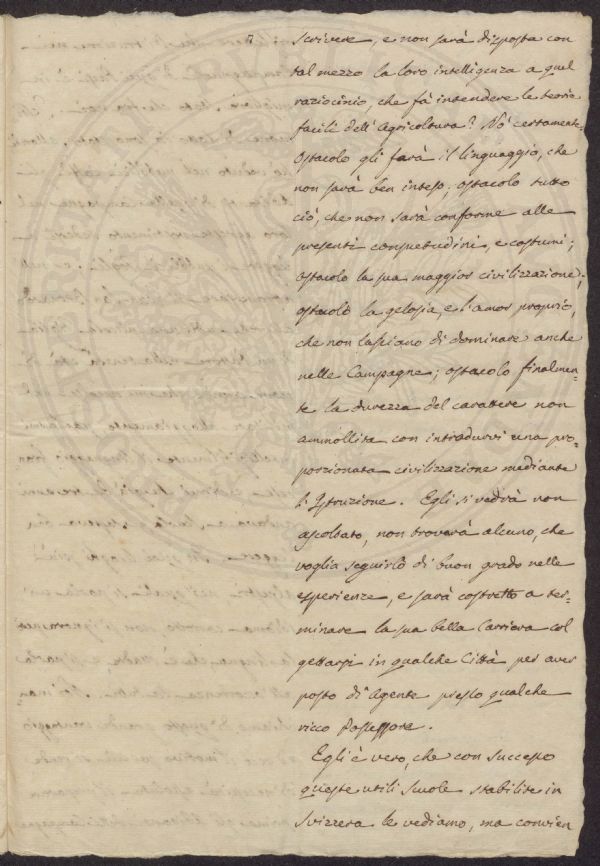 7
scrivere, e non sarà disposta con
tal mezzo la loro intelligenza a quel
raziocinio, che fà intendere le teorie
facili dell'Agricoltura? Nò certamente.
Ostacolo gli farà il linguaggio, che
non sarà ben inteso; ostacolo tutto
ciò, che non sarà conforme alle
presenti consuetudini, e costumi;
ostacolo la sua maggior civilizzazione;
ostacolo la gelosia, e l'amor proprio,
che non lasciano di dominare anche
nelle Campagne; ostacolo finalmen=
te la durezza del carattere non
ammollita con introdurvi una pro=
porzionata civilizzazione mediante
l'Istruzione. Egli si vedrà non
ascoltato, non troverà alcuno, che
voglia seguirlo di buon grado nelle
esperienze, e sarà costretto a ter=
minare la sua bella Carriera col
gettarsi in qualche Città per aver
posto di Agente presso qualche
ricco Possessore.
Egli è vero, che con successo
queste utili Scuole stabilite in
Svizzera le vediamo, ma convien